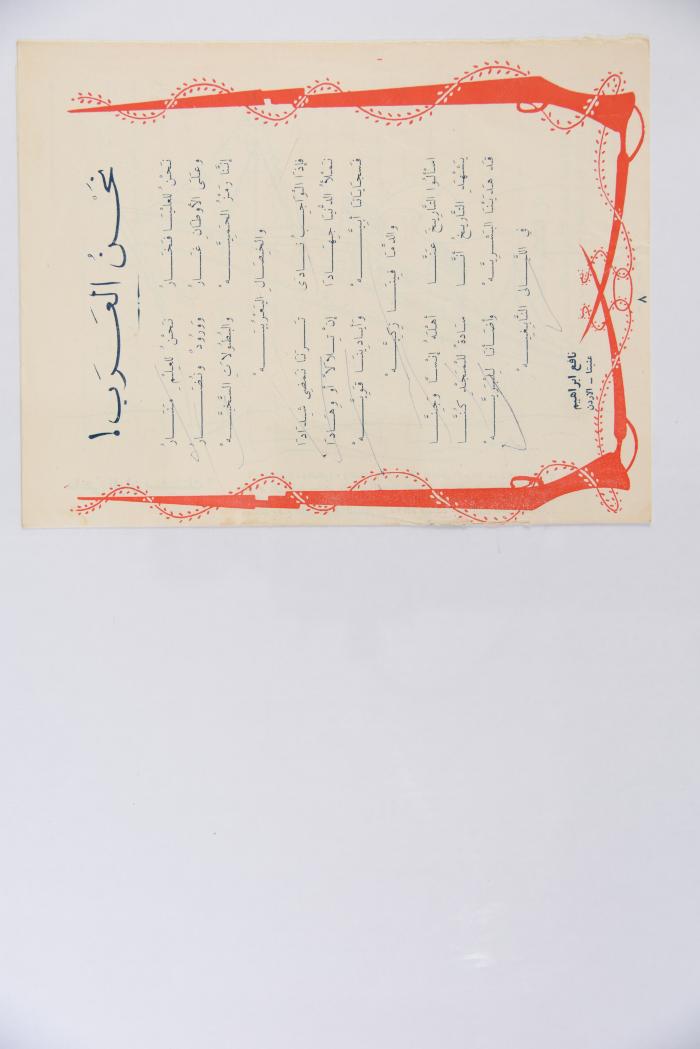 نَحْنُ العَرَب!
نَحْنُ لِلعَلْيَا فَخَارُ نَحْنُ لِلعِلْمِ مَنَارُ
وَعَلَى الأَوْطَانِ غَارُ وَوُرُودٌ وَنُضَارُ
إِنَّنَا رَمْزُ الحَمِيَّهْ وَالبُطُولَاتِ السَّخِيَّهْ
وَالخِصَالِ اليَعْرُبِيَّهْ
فَإِذَا الوَاجِبُ نَادَى تَرَنَا نَمْضِي شِدَادَا
نَمْلَأُ الدُّنْيَا جِهَادَا إِنْ تِلَالًا أَو وِهَادَا
فَسَجَايَانَا أَبِيَّهْ وَأَيَادِينَا قَوِيَّهْ
وَالدِّمَا فِينَا زَكِيَّهْ
اسْأَلُوا التَّأرِيخَ عَنَّا أَهْلَهُ إِنْسًا وَجِنَّا
يَشْهَدِ التَّأرِيخُ أَنَّا سَادَةً لِلْمَجْدِ كُنَّا
قَدْ هَدَيْنَا البَشَرِيَّهْ وَأَضَأْنَا لِلْبَرِيَّهْ
فِي اللَّيَالِي النَّابِغِيَّهْ
نافع ابراهيم
عنبتا - الاردن
٨